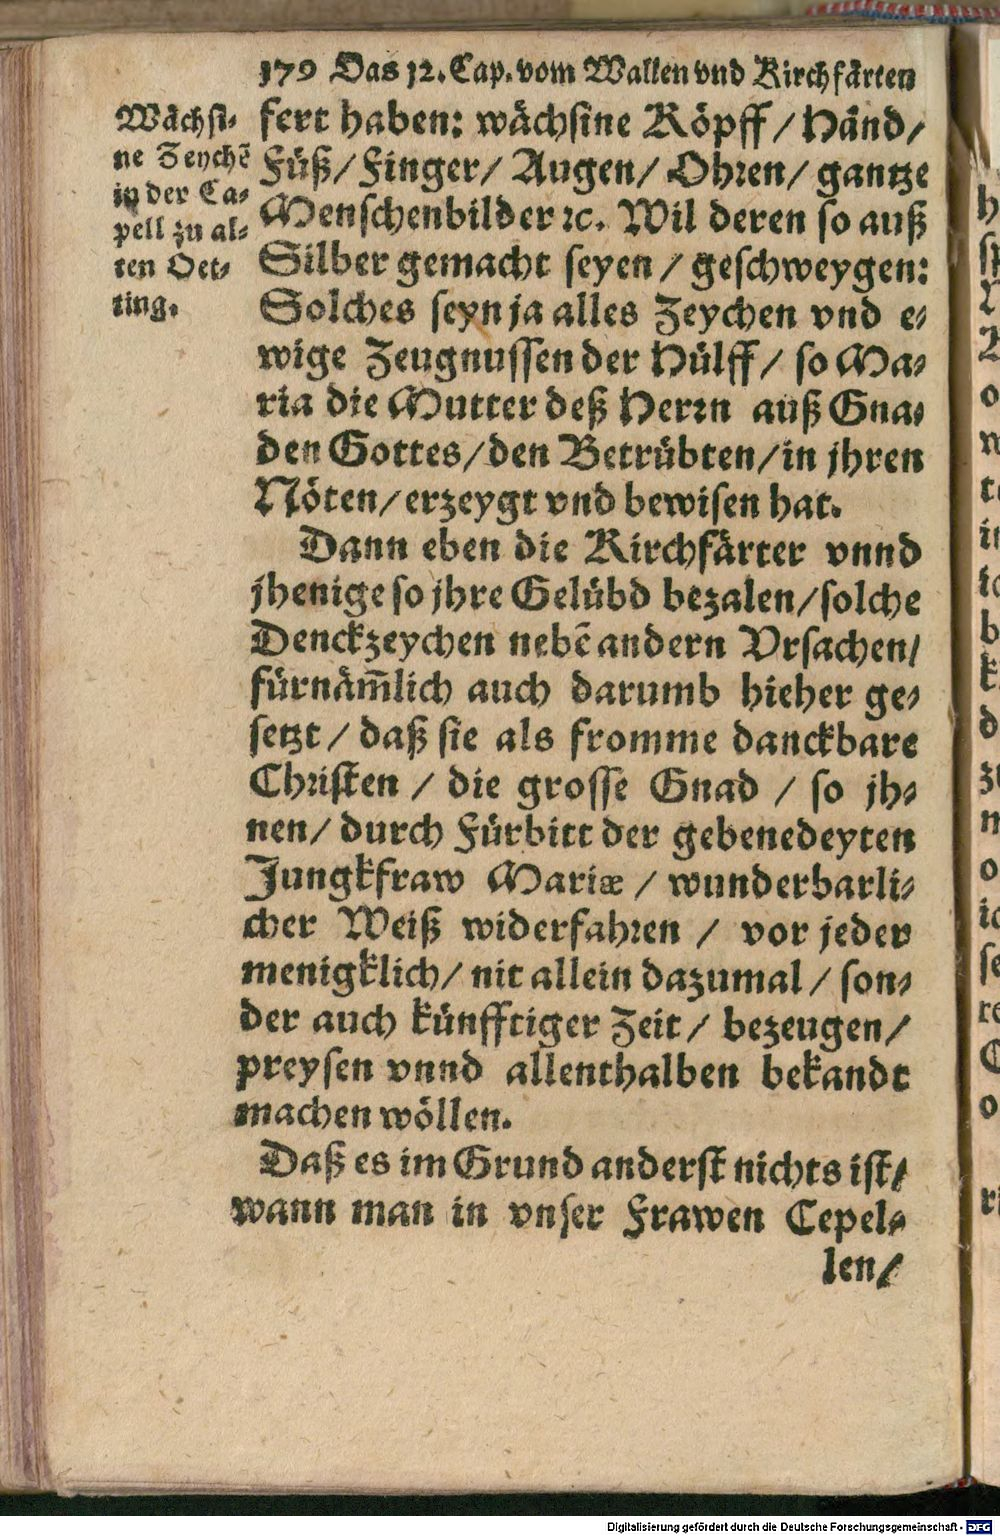 179 Das 12. Cap. vom Wallen vnd Kirchfärten
Wächsi-
ne Zeychẽ
in der Ca-
pell zu al-
ten Oet-
ting.
fert haben: wächsine Köpff / Händ /
Füß / Finger / Augen / Ohren / gantze
Menschenbilder ꝛc. Wil deren so auß
Silber gemacht seyen / geschweygen:
Solches seyn ja alles Zeychen vnd e-
wige Zeugnussen der Hülff / so Ma-
ria die Mutter deß Herrn auß Gna-
den Gottes / den Betrübten / in jhren
Nöten / erzeygt vnd bewisen hat.
Dann eben die Kirchfärter vnnd
jhenige so jhre Gelübd bezalen / solche
Denckzeychen nebẽ andern Vrsachen /
fürnäm̃lich auch darumb hieher ge-
setzt / daß sie als fromme danckbare
Christen / die grosse Gnad / so jh-
nen / durch Fürbitt der gebenedeyten
Jungkfraw Mariæ / wunderbarli-
cher Weiß widerfahren / vor jeder
menigklich / nit allein dazumal / son-
der auch künfftiger Zeit / bezeugen /
preysen vnnd allenthalben bekandt
machen wöllen.
Daß es im Grund anderst nichts ist /
wann man in vnser Frawen Cepel-
len /
Digitalisierung gefördert durch die Deutsche Forschungsgemeinschaft - DFG